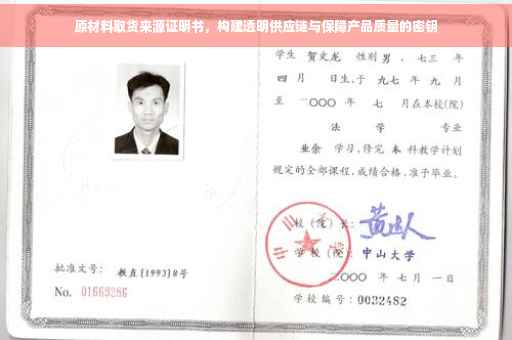 原材料取货来源证明书，构建透明供应链与保障产品质量的密钥
学生 贺文龙 性别 男 、七三 年
四 月 日生,于 九七 年 九 月
至 二〇〇〇 年 七 月在本校(院)
法 学 专业
业余 学习,修完 本 科教学计划
规定的全部课程,成绩合格,准予毕业。
校(院)长:
学校(院): 中山大学
二〇〇〇 年 七 月 一 日
学校编号: 0032482
批准文号: 教直[1993]8号
No. 01669286